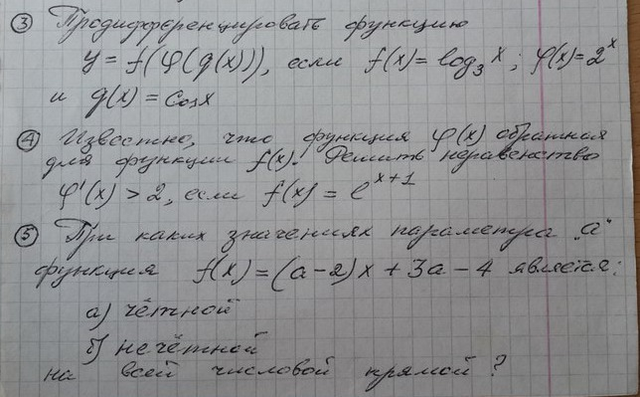 ③ Продифференцировать функцию
y = f(φ(g(x))), если f(x) = log₃ x; φ(x) = 2ˣ
и g(x) = cos x
④ Известно, что функция φ(x) обратная
для функции f(x). Решить неравенство
φ'(x) > 2, если f(x) = eˣ⁺¹
⑤ При каких значениях параметра „а"
функция f(x) = (a-2)x + 3a - 4 является:
а) чётной
б) нечётной
на всей числовой прямой?